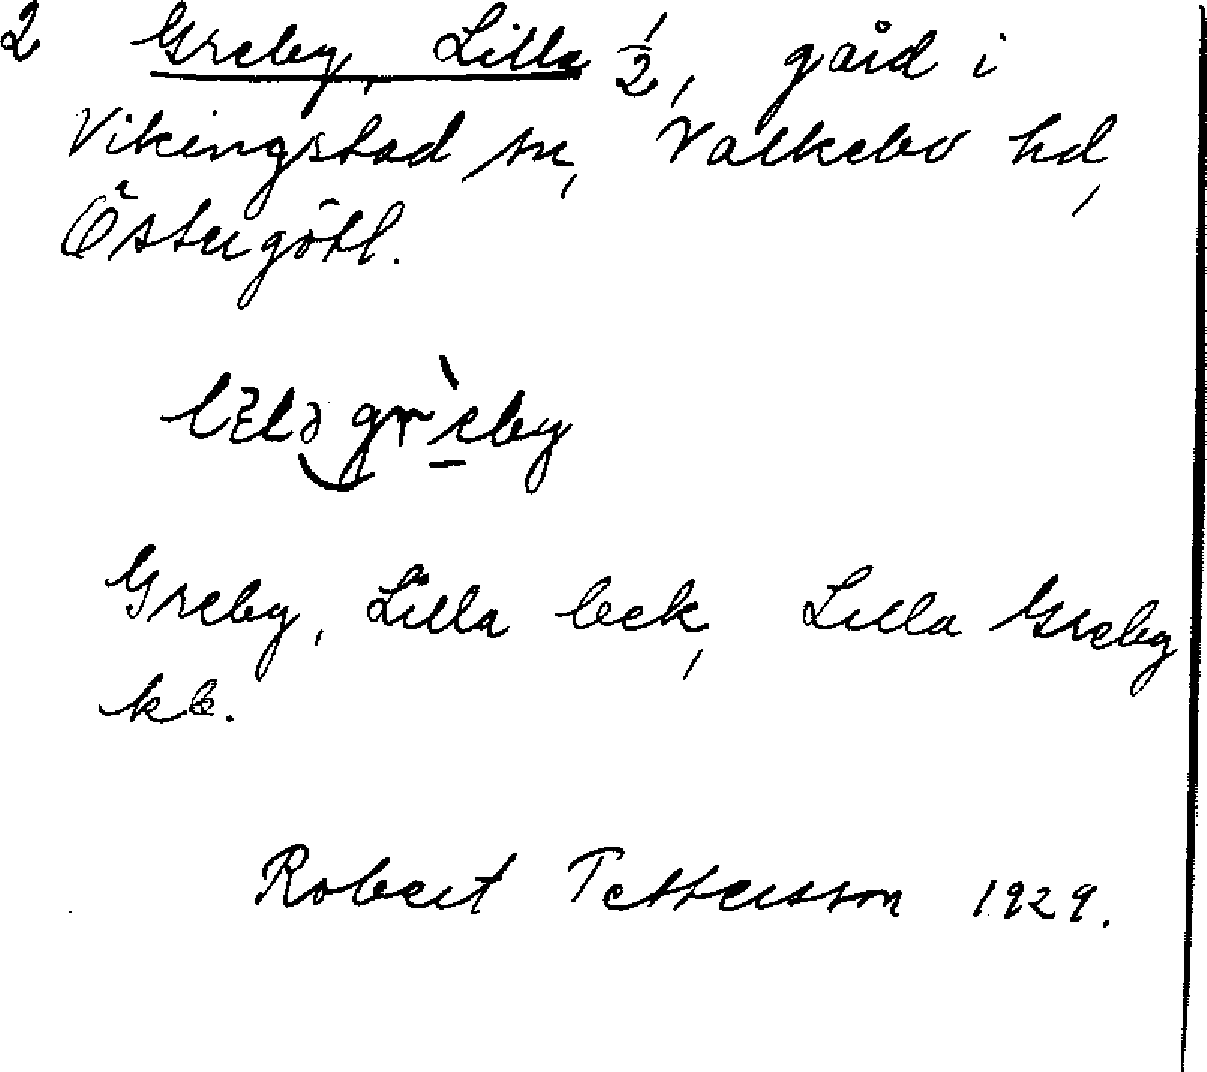 2 Greby, Lilla 1/2, gård i
Vikingstad sn, Valkebo hd,
Östergötl.
grèby
Greby, Lilla leck, Lilla Greby
kb.
Robert Pettersson 1929.